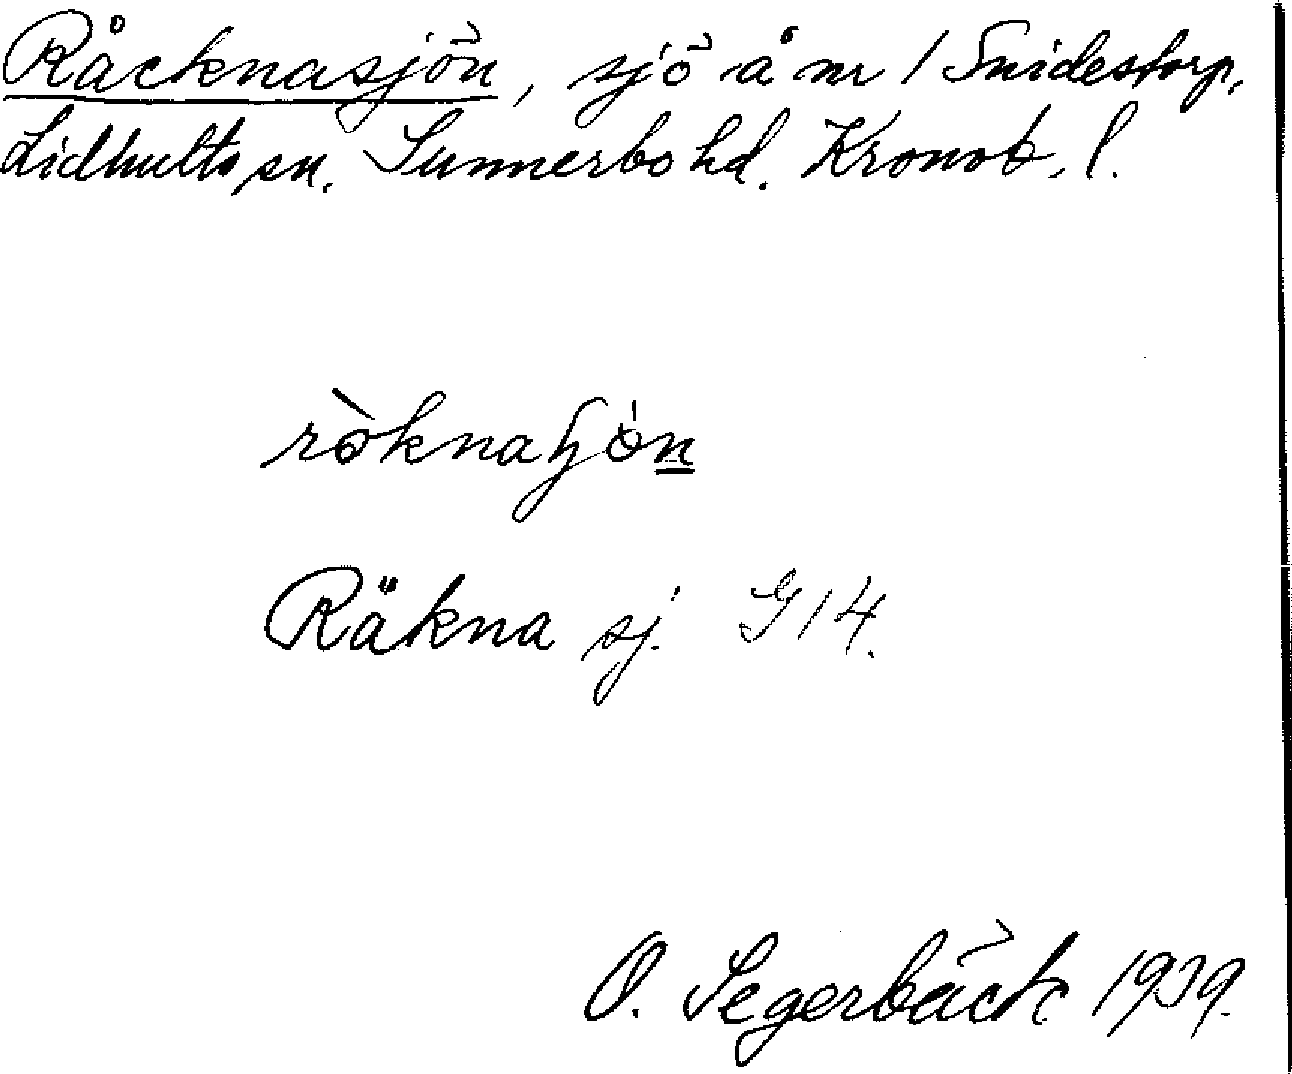 Råcknasjön, sjö å nr 1 Snidestorp,
Lidhults sn. Sunnerbo hd. Kronob. l.
Räkna sj. G14.
O. Segerbäck 1939.